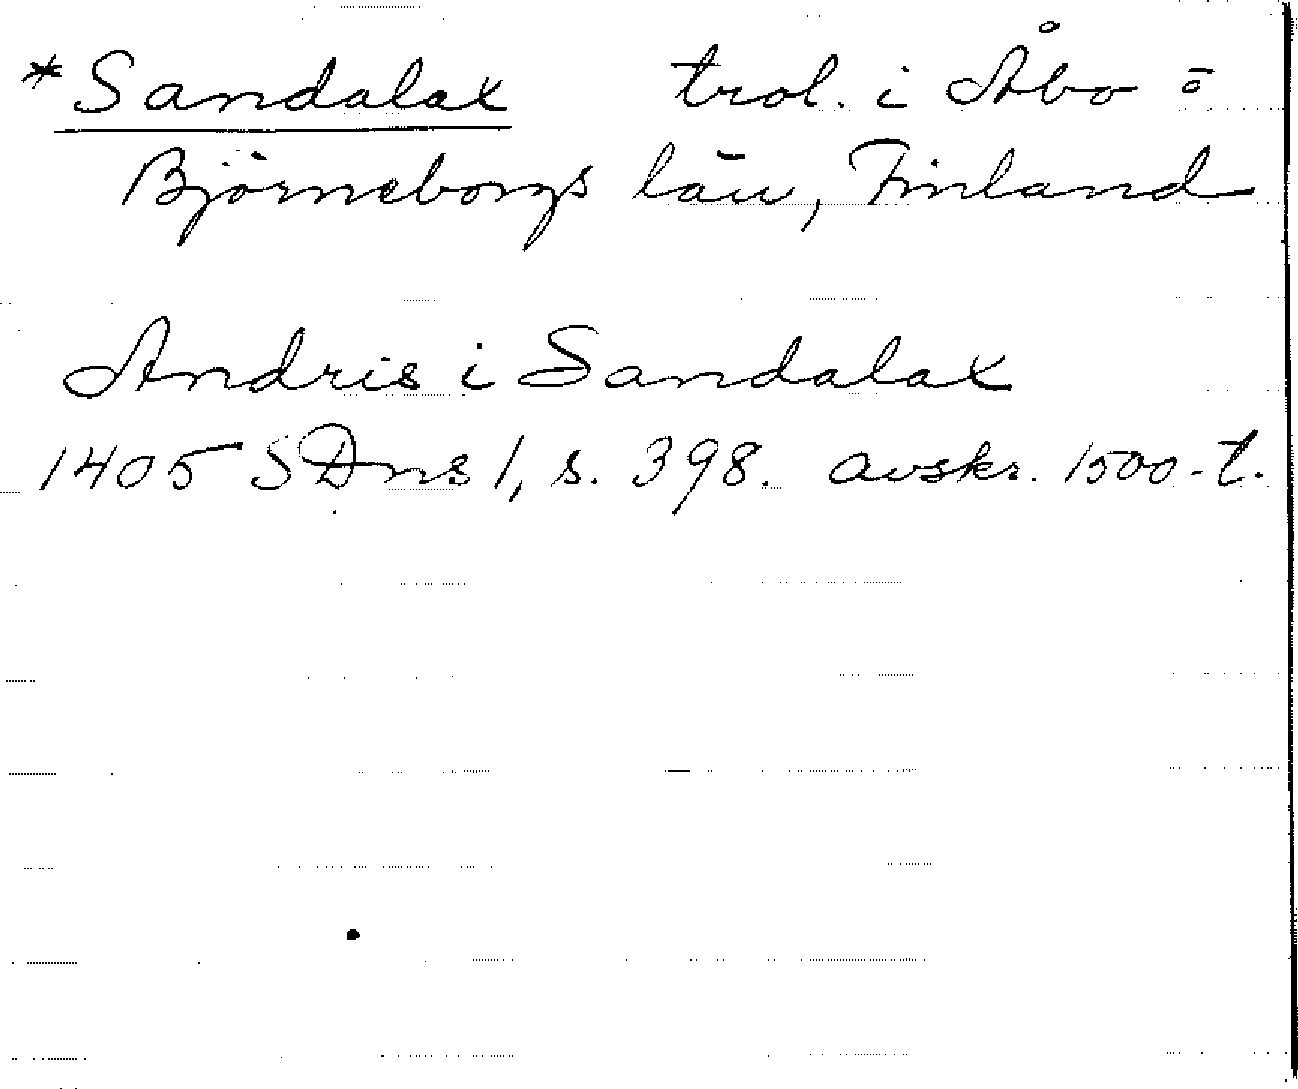 *Sandalax trol. i Åbo o
Björneborgs län, Finland
Andris i Sandalax
1405 SDns 1, s. 398. avskr. 1500-t.